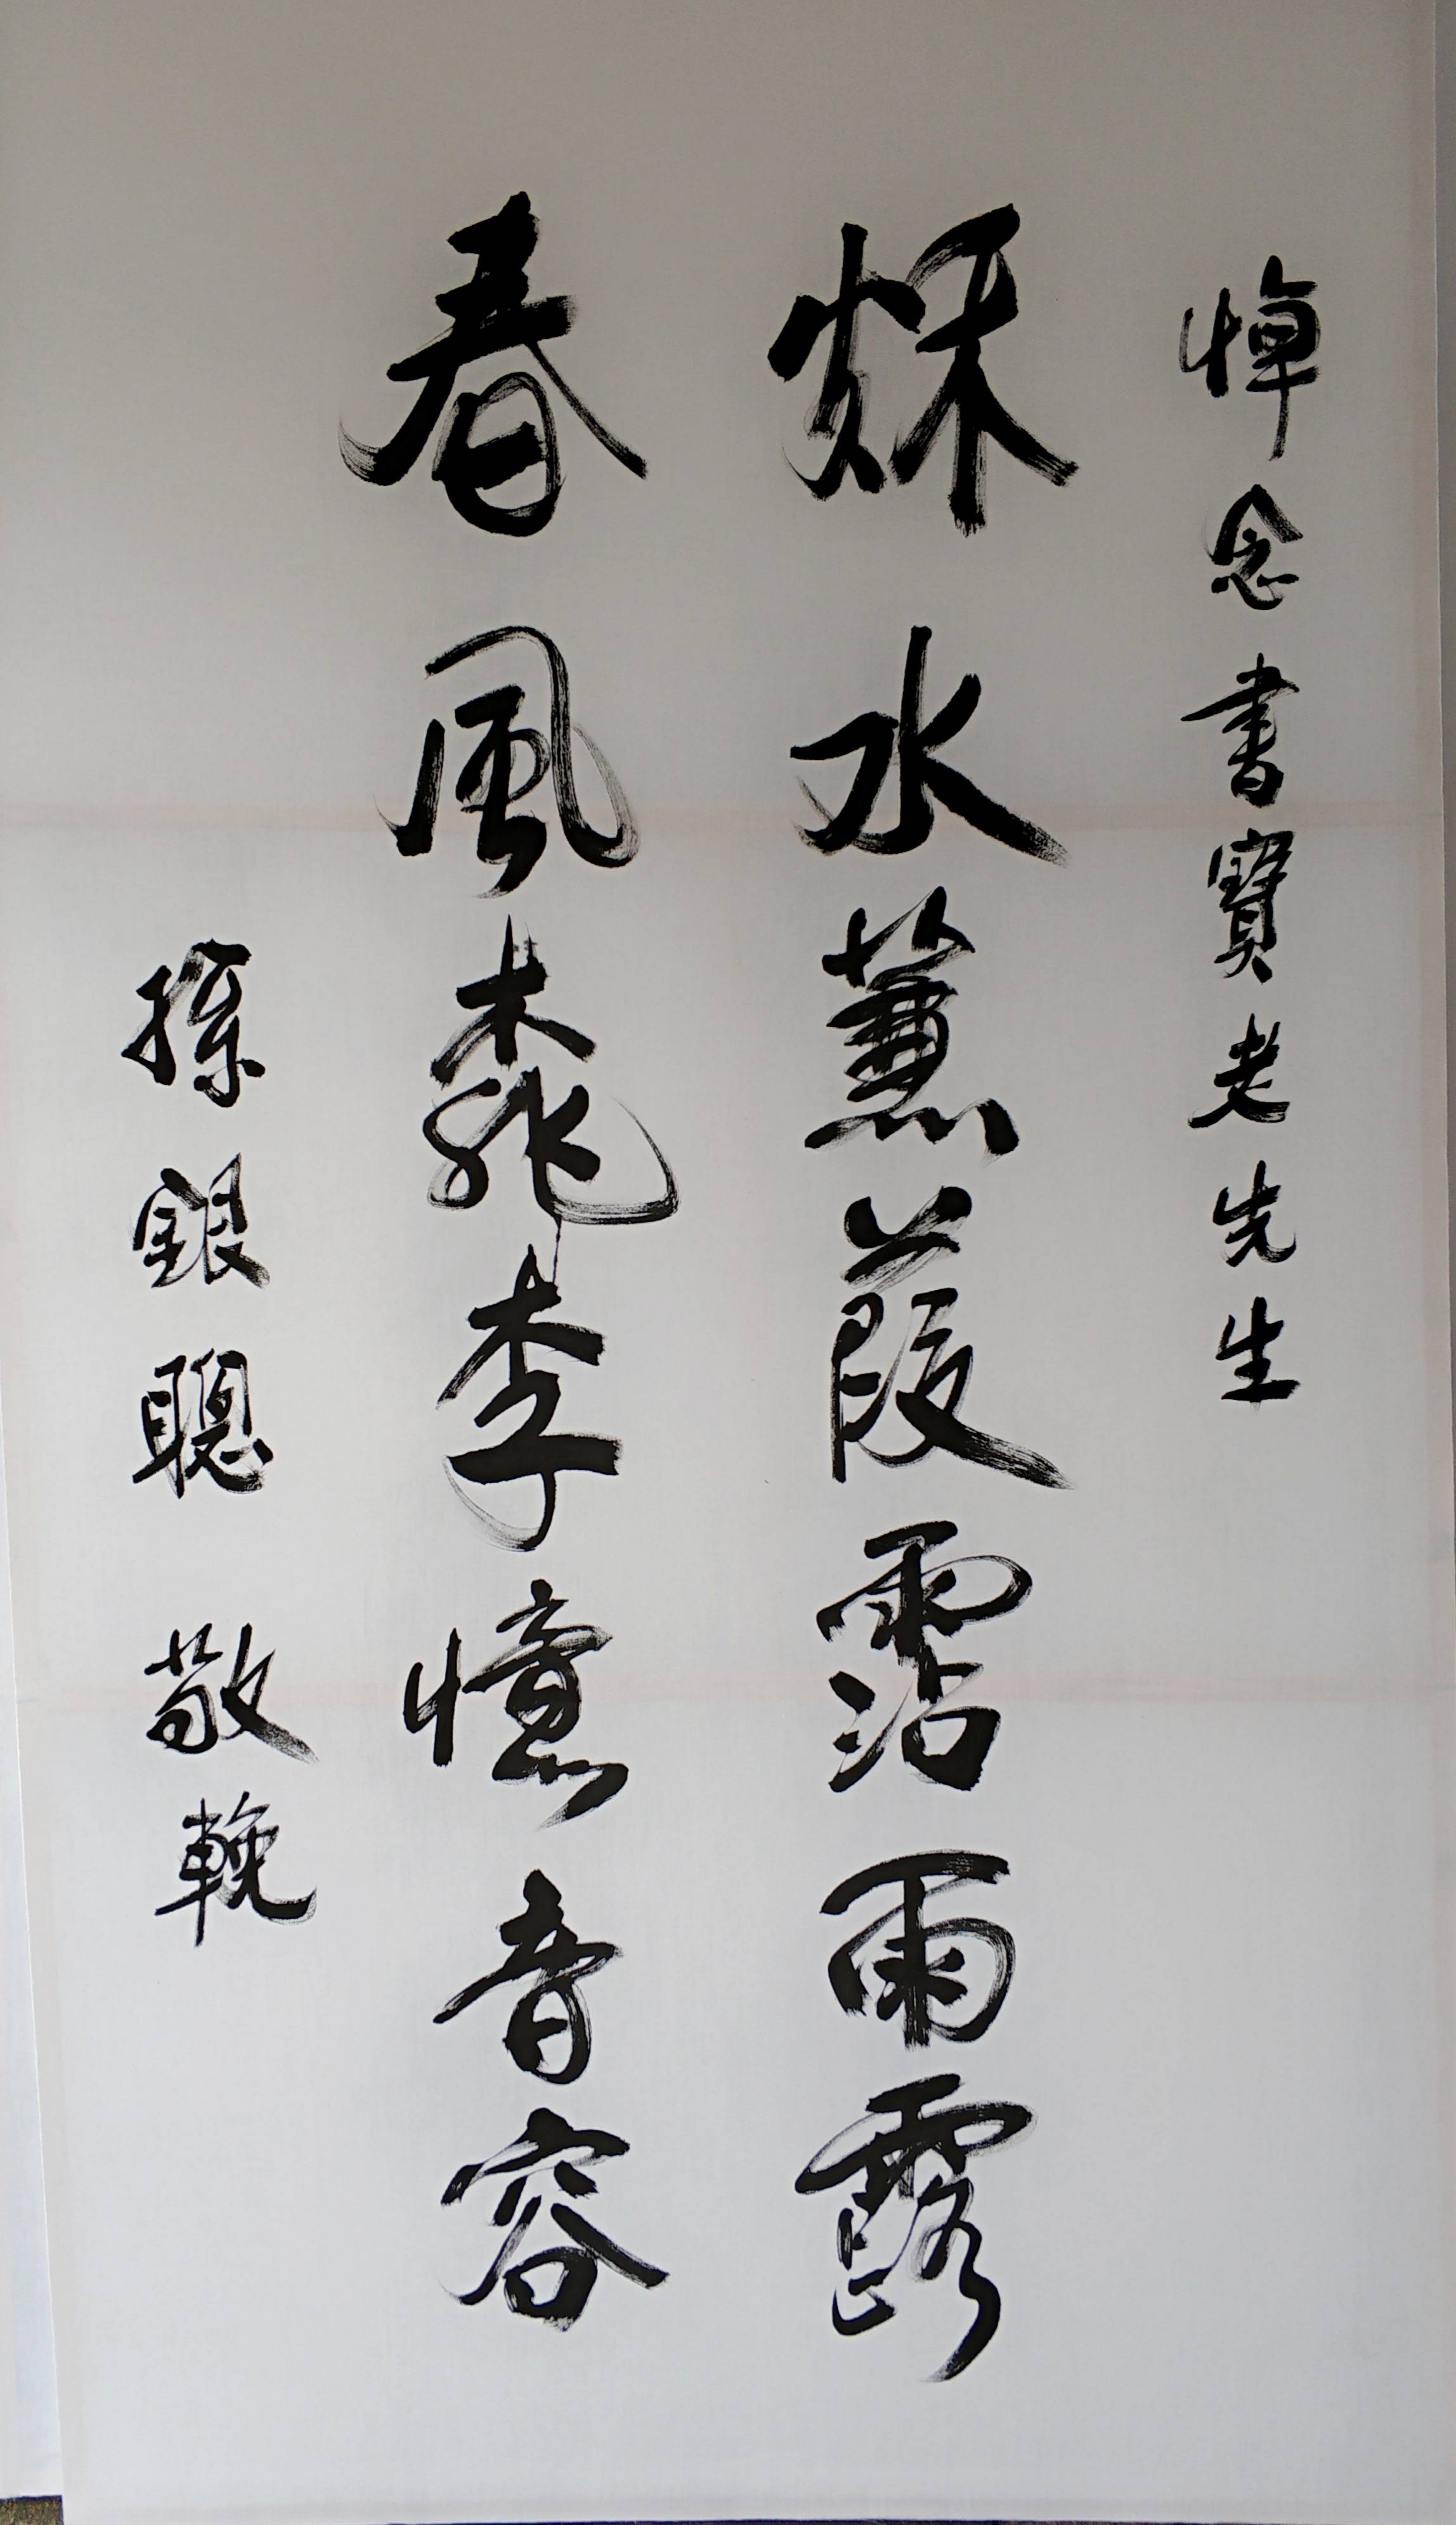 悼念書寶老先生
秌水蒹葭霑雨露
春風桃李憶音容
孫銀聰 敬輓